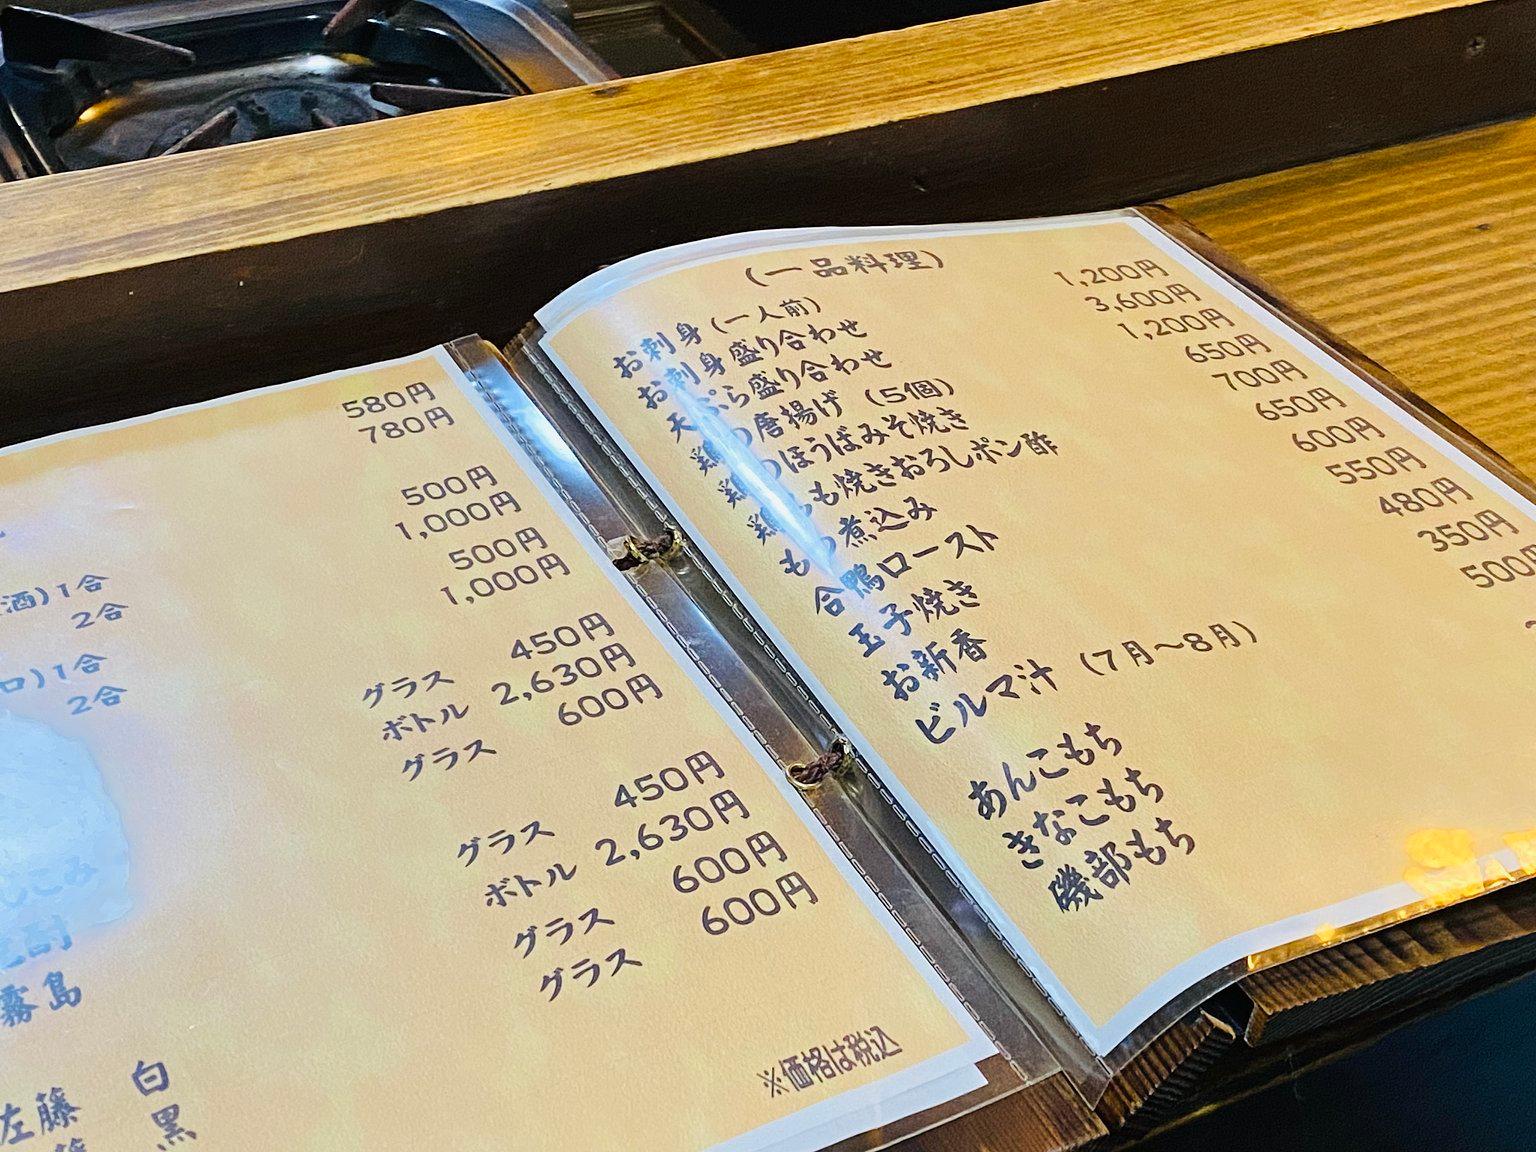 580円
780円
500円
1,000円
500円
1,000円
酒)1合
2合
口)1合
2合
グラス 450円
ボトル 2,630円
グラス 600円
グラス 450円
ボトル 2,630円
グラス 600円
グラス 600円
霧島
佐藤 白
黒
※価格は税込
(一品料理)
お刺身(一人前) 1,200円
お刺身盛り合わせ 3,600円
天ぷら盛り合わせ 1,200円
鶏の唐揚げ(5個) 650円
鶏のほうばみそ焼き 700円
鶏もも焼きおろしポン酢 650円
もつ煮込み 600円
合鴨ロースト 550円
玉子焼き 480円
お新香 350円
ビルマ汁(7月〜8月) 500円
あんこもち
きなこもち
磯部もち